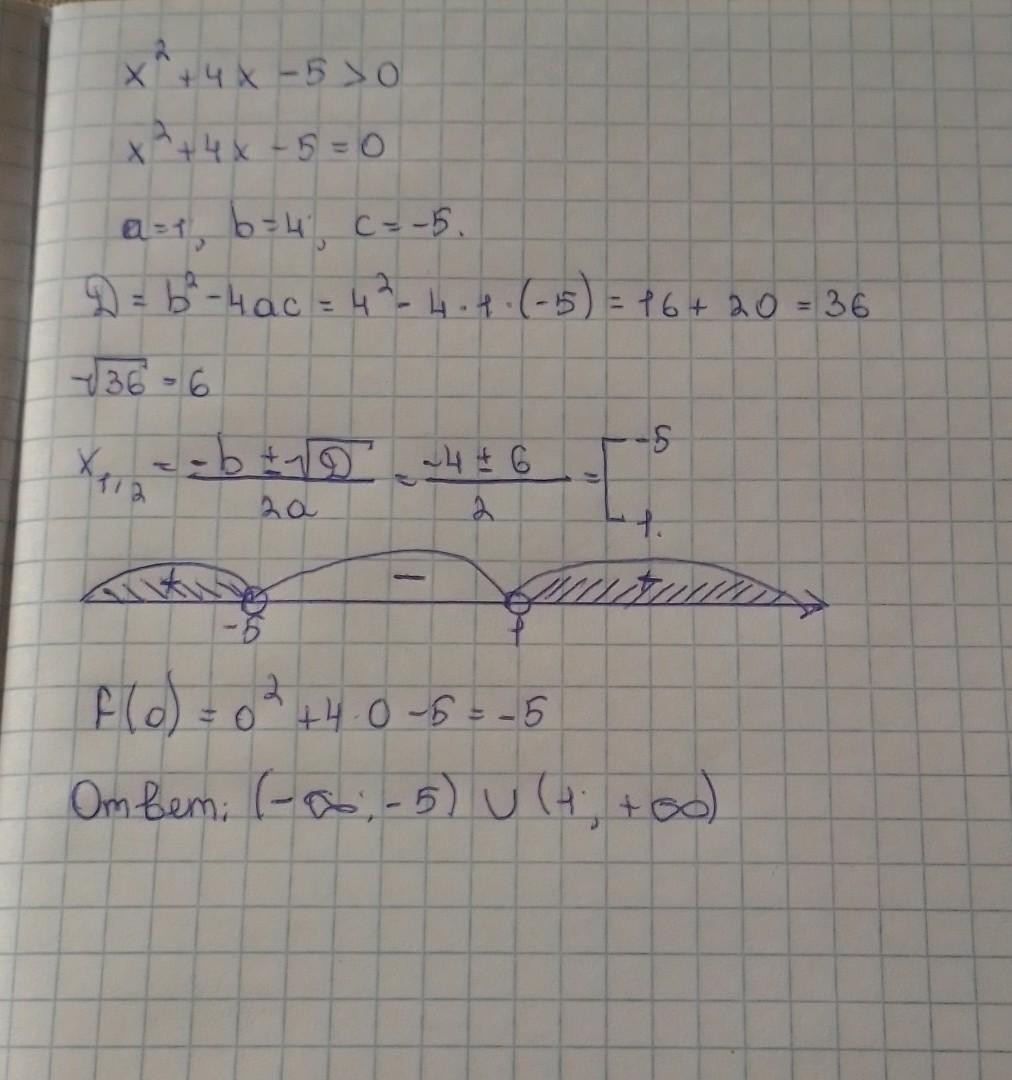 x² + 4x - 5 > 0
x² + 4x - 5 = 0
a = 1, b = 4, c = -5.
D = b² - 4ac = 4² - 4 · 1 · (-5) = 16 + 20 = 36
√36 = 6
x₁,₂ = (-b ± √D) / 2a = (-4 ± 6) / 2 = [-5 1.
+ - +
-5 1
f(0) = 0² + 4 · 0 - 5 = -5
Ответ: (-∞; -5) ∪ (1; +∞)